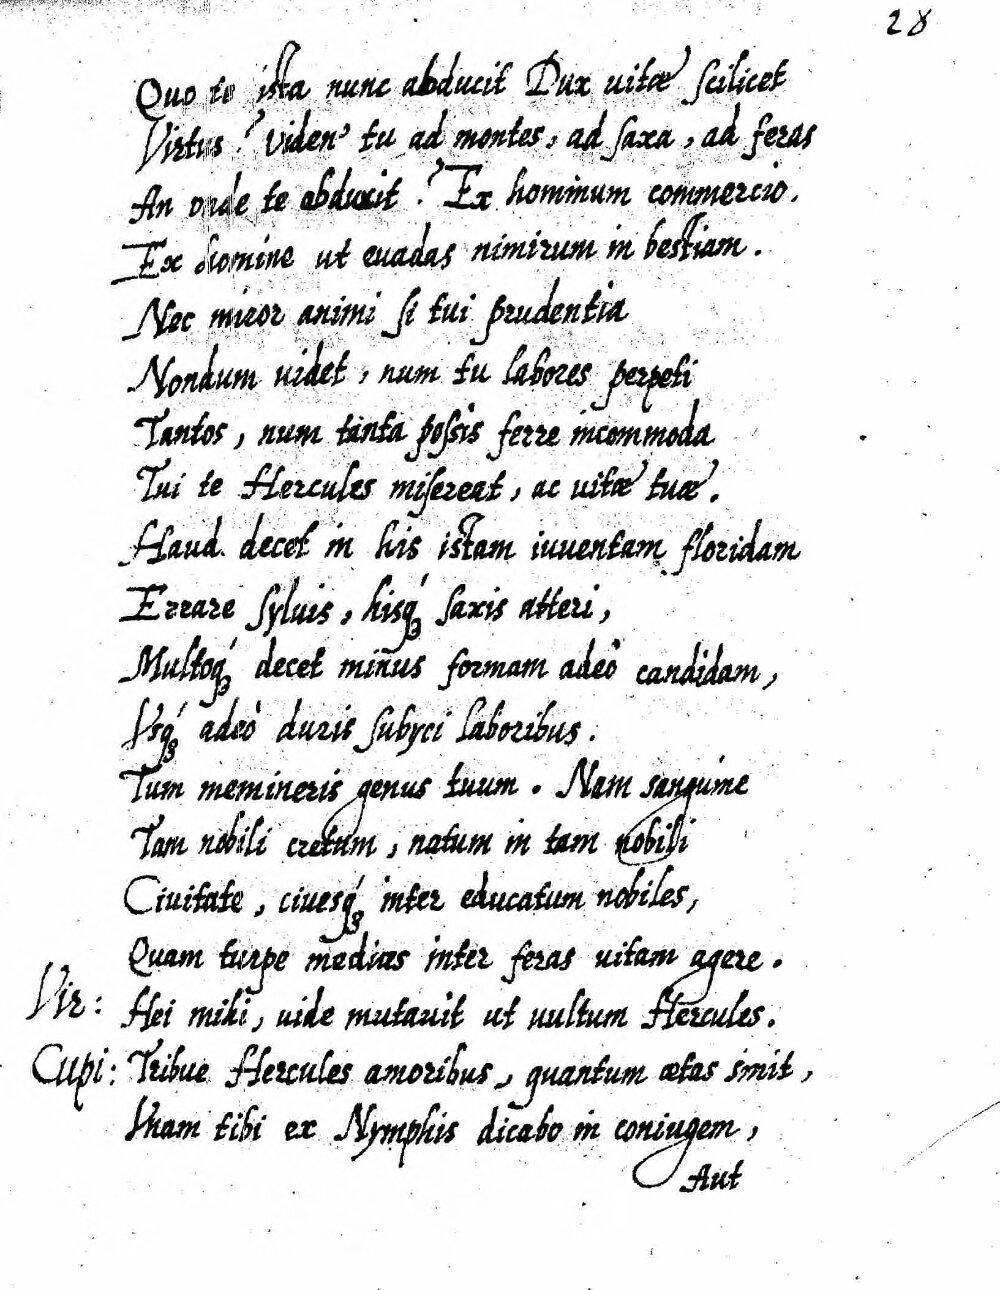 28
Quo te ista nunc abducit Dux uitæ scilicet
Virtus? viden' tu ad montes, ad saxa, ad feras
An unde te abduxit? Ex hominum commercio.
Ex homine ut euadas nimirum in bestiam.
Nec miror animi si tui prudentia
Nondum uidet, num tu labores perpeti
Tantos, num tanta possis ferre incommoda
Tui te Hercules misereat, ac uitæ tuæ.
Haud decet in his istam iuuentam floridam
Errare syluis, hisq́ꝫ saxis atteri,
Multoq́ꝫ decet minus formam adeò candidam,
Vsq́ꝫ adeò duris subijci laboribus.
Tum memineris genus tuum. Nam sanguine
Tam nobili cretum, natum in tam nobili
Ciuitate, ciuesq́ꝫ inter educatum nobiles,
Quam turpe medias inter feras uitam agere.
Vir: Hei mihi, uide mutauit ut uultum Hercules.
Cupi: Tribue Hercules amoribus, quantum ætas sinit,
Vnam tibi ex Nymphis dicabo in coniugem,
Aut